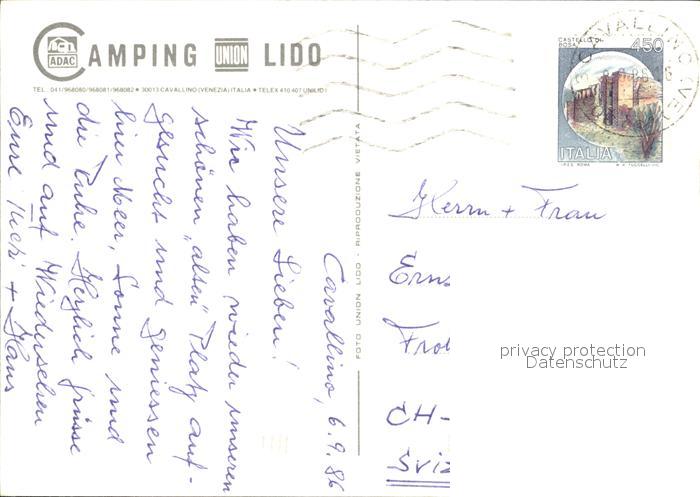 ADAC
CAMPING UNION LIDO
TEL. 041/968080/968081/968082 • 30013 CAVALLINO (VENEZIA) ITALIA • TELEX 410 407 UNILIDO I
Cavallino, 6.9.86
Unsere Lieben!
Wir haben wieder unseren
schönen "alten" Platz auf-
gesucht und geniessen
hier Meer, Sonne und
die Ruhe. Herzlich grüsse
und auf Wiedersehen
Eure + Hans
FOTO UNION LIDO - RIPRODUZIONE VIETATA
CASTELLO DI
BOSA
450
ITALIA
I.P.Z.S. ROMA
CAVALLINO (VE)
Herrn + Frau
Erns
Frob
CH-
Sviz
privacy protection
Datenschutz